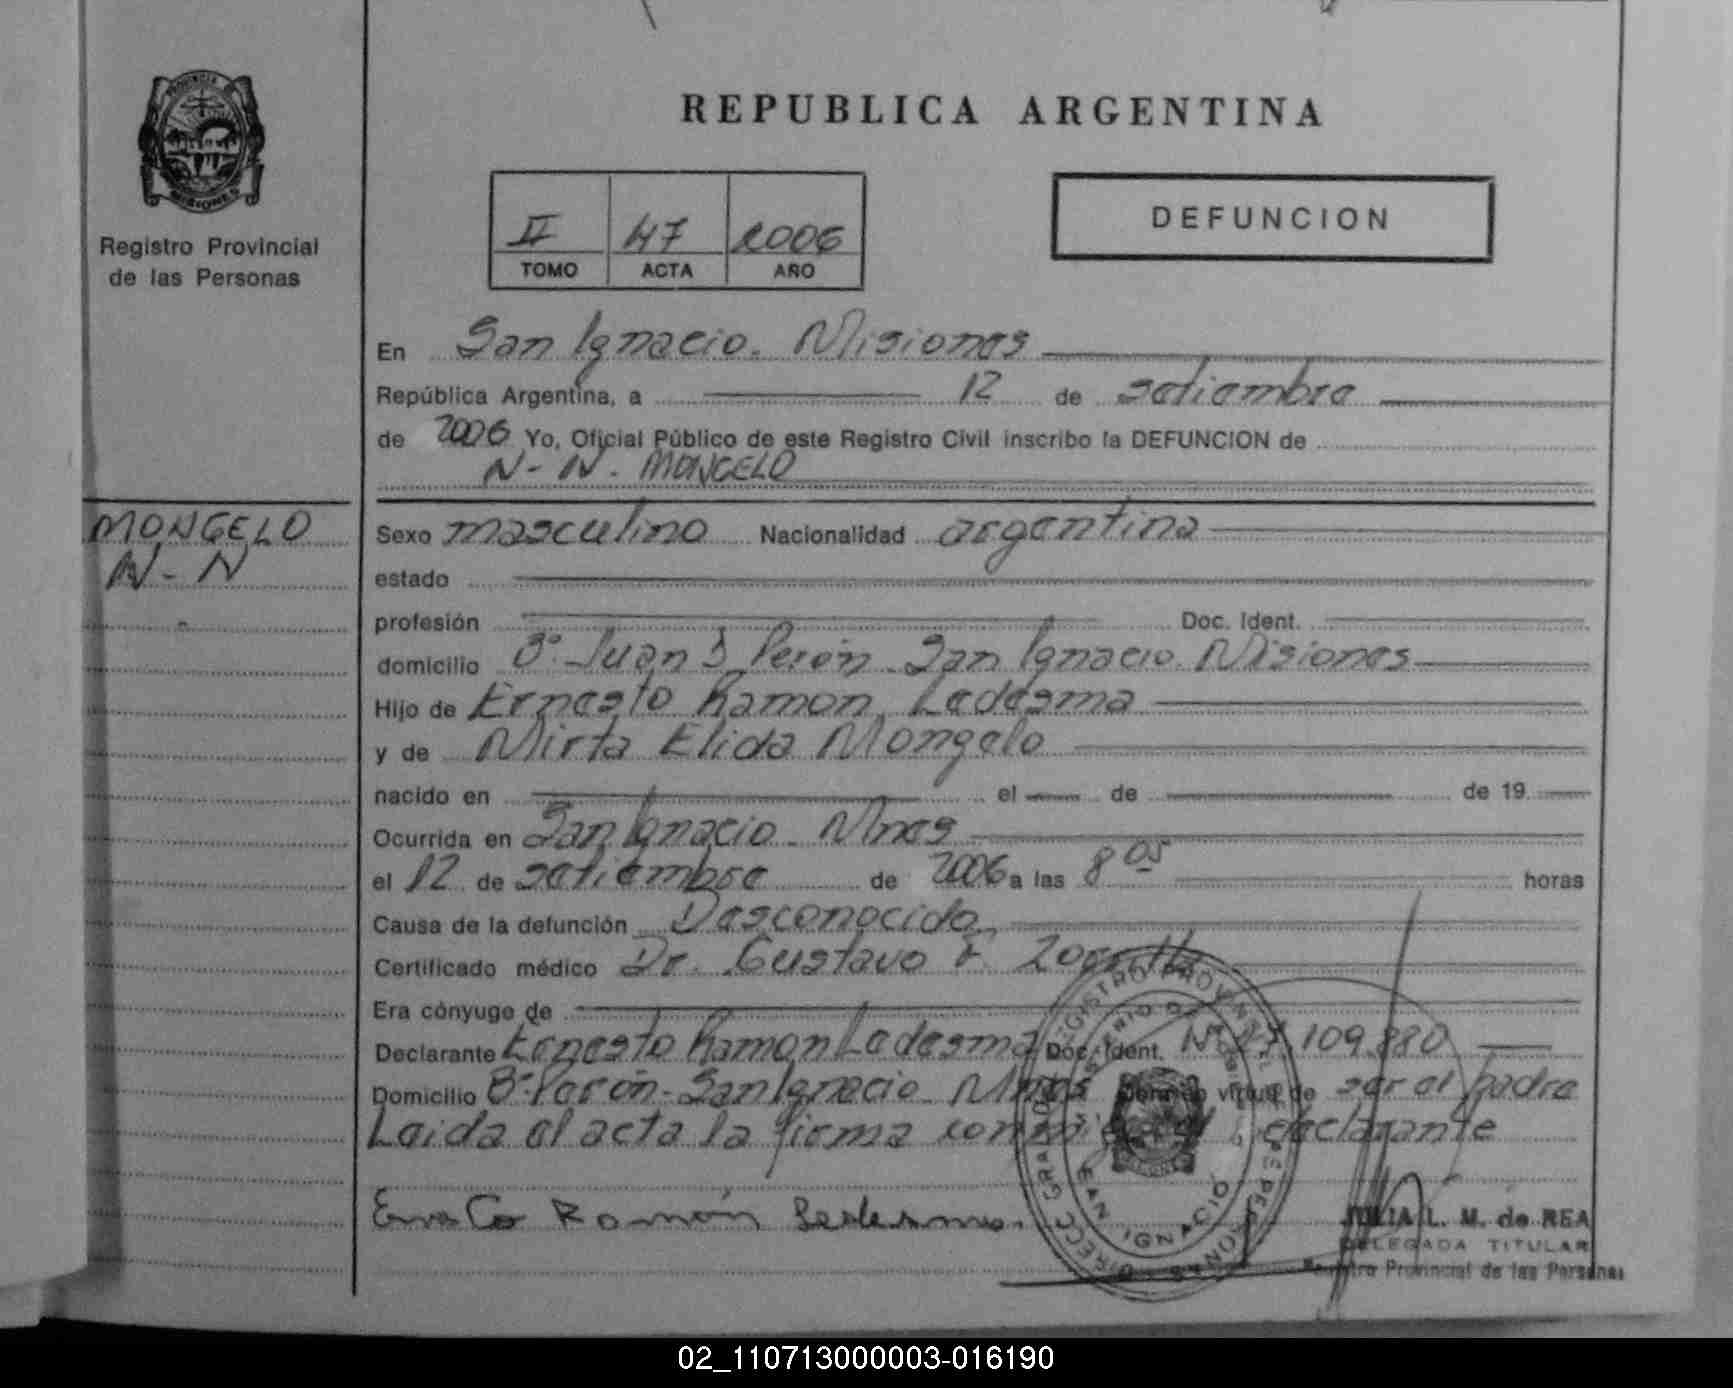 PROVINCIA DE
MISIONES
Registro Provincial
de las Personas
REPUBLICA ARGENTINA
II 47 2006
TOMO ACTA AÑO
DEFUNCION
En San Ignacio. Misiones
República Argentina, a 12 de setiembre
de 2006 Yo, Oficial Público de este Registro Civil inscribo la DEFUNCION de
N-N. MONGELO
MONGELO
N-N
Sexo masculino Nacionalidad argentina
estado
profesión Doc. Ident.
domicilio Bº Juan D Perón San Ignacio Misiones
Hijo de Ernesto Ramon Ledesma
y de Mirta Elida Mongelo
nacido en el de de 19
Ocurrida en San Ignacio Mnes
el 12 de setiembre de 2006 a las 8 05 horas
Causa de la defunción Desconocida
Certificado médico Dr. Gustavo F.
Era cónyuge de
Declarante Ernesto Ramon Ledesma Doc. Ident. Nº 109.880
Domicilio Bº Perón-San Ignacio Mnes virtud de ser el padre
Leida el acta la firma conmigo el declarante
Ernesto Ramón Ledesma.
SAN IGNACIO
JULIA L. M. de REA
DELEGADA TITULAR
Registro Provincial de las Personas
02_110713000003-016190